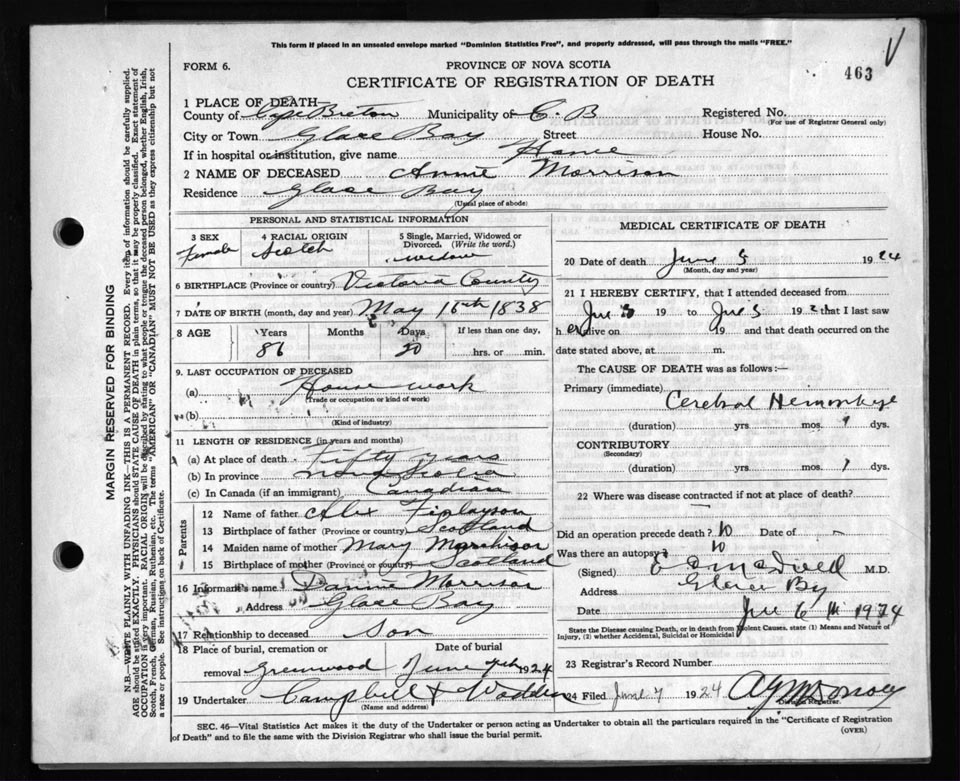 This form if placed in an unsealed envelope marked "Dominion Statistics Free", and properly addressed, will pass through the mails "FREE."
V
FORM 6.
PROVINCE OF NOVA SCOTIA
463
CERTIFICATE OF REGISTRATION OF DEATH
MARGIN RESERVED FOR BINDING
N.B.—WRITE PLAINLY WITH UNFADING INK—THIS IS A PERMANENT RECORD. Every item of information should be carefully supplied.
AGE should be stated EXACTLY. PHYSICIANS should STATE CAUSE OF DEATH in plain terms, so that it may be properly classified. Exact statement of
OCCUPATION is very important. RACIAL ORIGIN will be described by stating to what people or tongue the deceased person belonged, whether English, Irish,
Scotch, French, German, Russian, Ruthenian, etc. The terms "AMERICAN" OR "CANADIAN" MUST NOT BE USED as they express citizenship but not
a race or people. See instructions on back of Certificate.
1 PLACE OF DEATH—
County of Cape Breton Municipality of C. B Registered No.
(For use of Registrar General only)
City or Town Glace Bay Street House No.
If in hospital or institution, give name Home
2 NAME OF DECEASED Annie Morrison
Residence Glace Bay
(Usual place of abode)
PERSONAL AND STATISTICAL INFORMATION
3 SEX 4 RACIAL ORIGIN 5 Single, Married, Widowed or Divorced. (Write the word.)
Female Scotch widow
6 BIRTHPLACE (Province or country) Victoria County
7 DATE OF BIRTH (month, day and year) May 16th 1838
8 AGE Years Months Days If less than one day,
86 20 hrs. or min.
9. LAST OCCUPATION OF DECEASED
(a) House work
(Trade or occupation or kind of work)
(b)
(Kind of industry)
11 LENGTH OF RESIDENCE (in years and months)
(a) At place of death Fifty years
(b) In province Nova Scotia
(c) In Canada (if an immigrant) Canadian
Parents
12 Name of father Alex Finlayson
13 Birthplace of father (Province or country) Scotland
14 Maiden name of mother Mary
15 Birthplace of mother (Province or country) Scotland
16 Informant's name Dannie Morrison
Address Glace Bay
17 Relationship to deceased Son
18 Place of burial, cremation or removal Date of burial
Greenwood June 7th 1924
19 Undertaker Campbell & Wadden
(Name and address)
MEDICAL CERTIFICATE OF DEATH
20 Date of death June 5 1924
(Month, day and year)
21 I HEREBY CERTIFY, that I attended deceased from
19 to 19 that I last saw
her alive on 19 and that death occurred on
date stated above, at m.
The CAUSE OF DEATH was as follows:—
Primary (immediate)
Cerebral Hemorrhage
(duration) yrs. mos. dys.
CONTRIBUTORY
(Secondary)
(duration) yrs. mos. dys.
22 Where was disease contracted if not at place of death?
Did an operation precede death? No Date of
Was there an autopsy? No
(Signed) M.D.
Address Glace Bay
Date 6 1924
State the Disease causing Death, or in death from Violent Causes, state (1) Means and Nature of
Injury, (2) whether Accidental, Suicidal or Homicidal
23 Registrar's Record Number
24 Filed June 7 1924
Division Registrar.
SEC. 46—Vital Statistics Act makes it the duty of the Undertaker or person acting as Undertaker to obtain all the particulars required in the "Certificate of Registration
of Death" and to file the same with the Division Registrar who shall issue the burial permit.
(OVER)